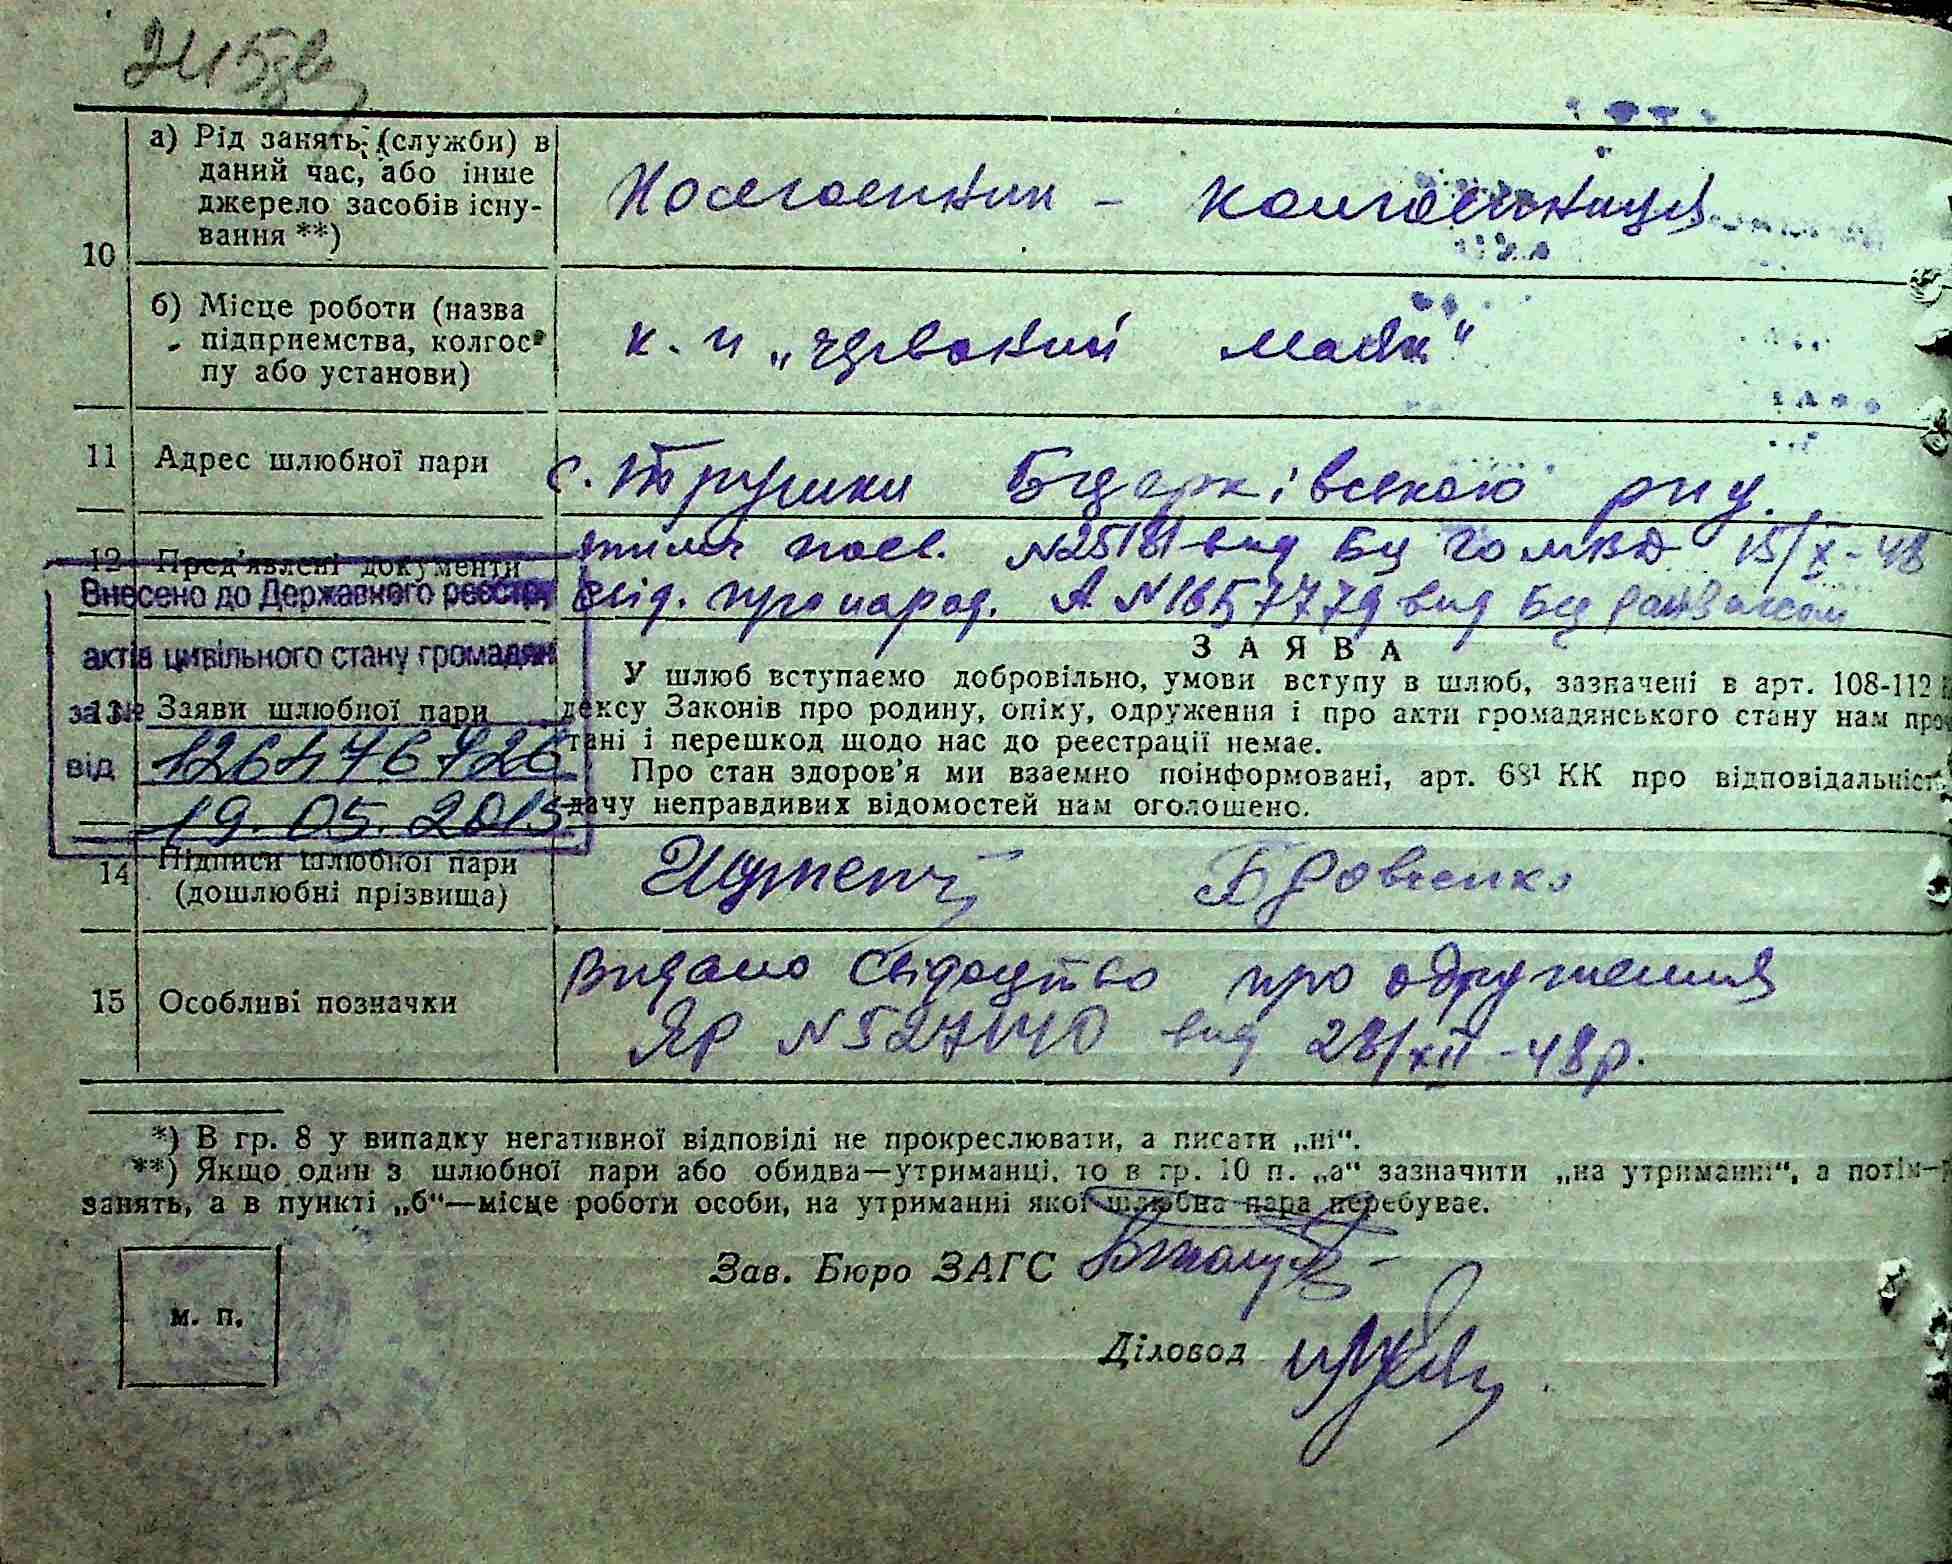 а) Рід занять (служби) в
даний час, або інше
джерело засобів існу-
вання **)
Колгоспник - колгоспниця
10
б) Місце роботи (назва
підприємства, колгос-
пу або установи)
к. и „Червоний маяк"
11 Адрес шлюбної пари
с. Трушки Бцерківського р-ну.
12 Пред'явлені документи
тимч посв. №25181 вид Бц ГО МВД 15/X-48
свід. про народ. А №1657779 вид Бц райзагсом
Внесено до Державного реєстру
актів цивільного стану громадян
за №
від 126476726
19.05.2015
13 Заяви шлюбної пари
ЗАЯВА
У шлюб вступаємо добровільно, умови вступу в шлюб, зазначені в арт. 108-112
дексу Законів про родину, опіку, одруження і про акти громадянського стану нам про
тані і перешкод щодо нас до реєстрації немає.
Про стан здоров'я ми взаємно поінформовані, арт. 68¹ КК про відповідальність
дачу неправдивих відомостей нам оголошено.
14 Підписи шлюбної пари
(дошлюбні прізвища)
Бдовиенко
15 Особливі позначки
Видано свідоцтво про одруження
ЯР №527140 вид 28/XII-48р.
*) В гр. 8 у випадку негативної відповіді не прокреслювати, а писати „ні".
**) Якщо один з шлюбної пари або обидва—утриманці, то в гр. 10 п. „а" зазначити „на утриманні", а потім—
занять, а в пункті „б"—місце роботи особи, на утриманні якої шлюбна пара перебуває.
Зав. Бюро ЗАГС
Діловод
м. п.